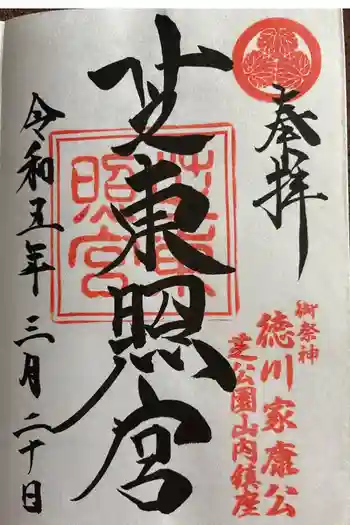 奉拝
御祭神
徳川家康公
芝公園山内鎮座
芝東照宮
芝東照宮
令和五年三月二十日